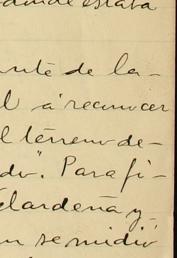 donde estaba
ante de la-
l á reconocer
l terreno de-
do". Para fi-
Cardeña y
n se midió